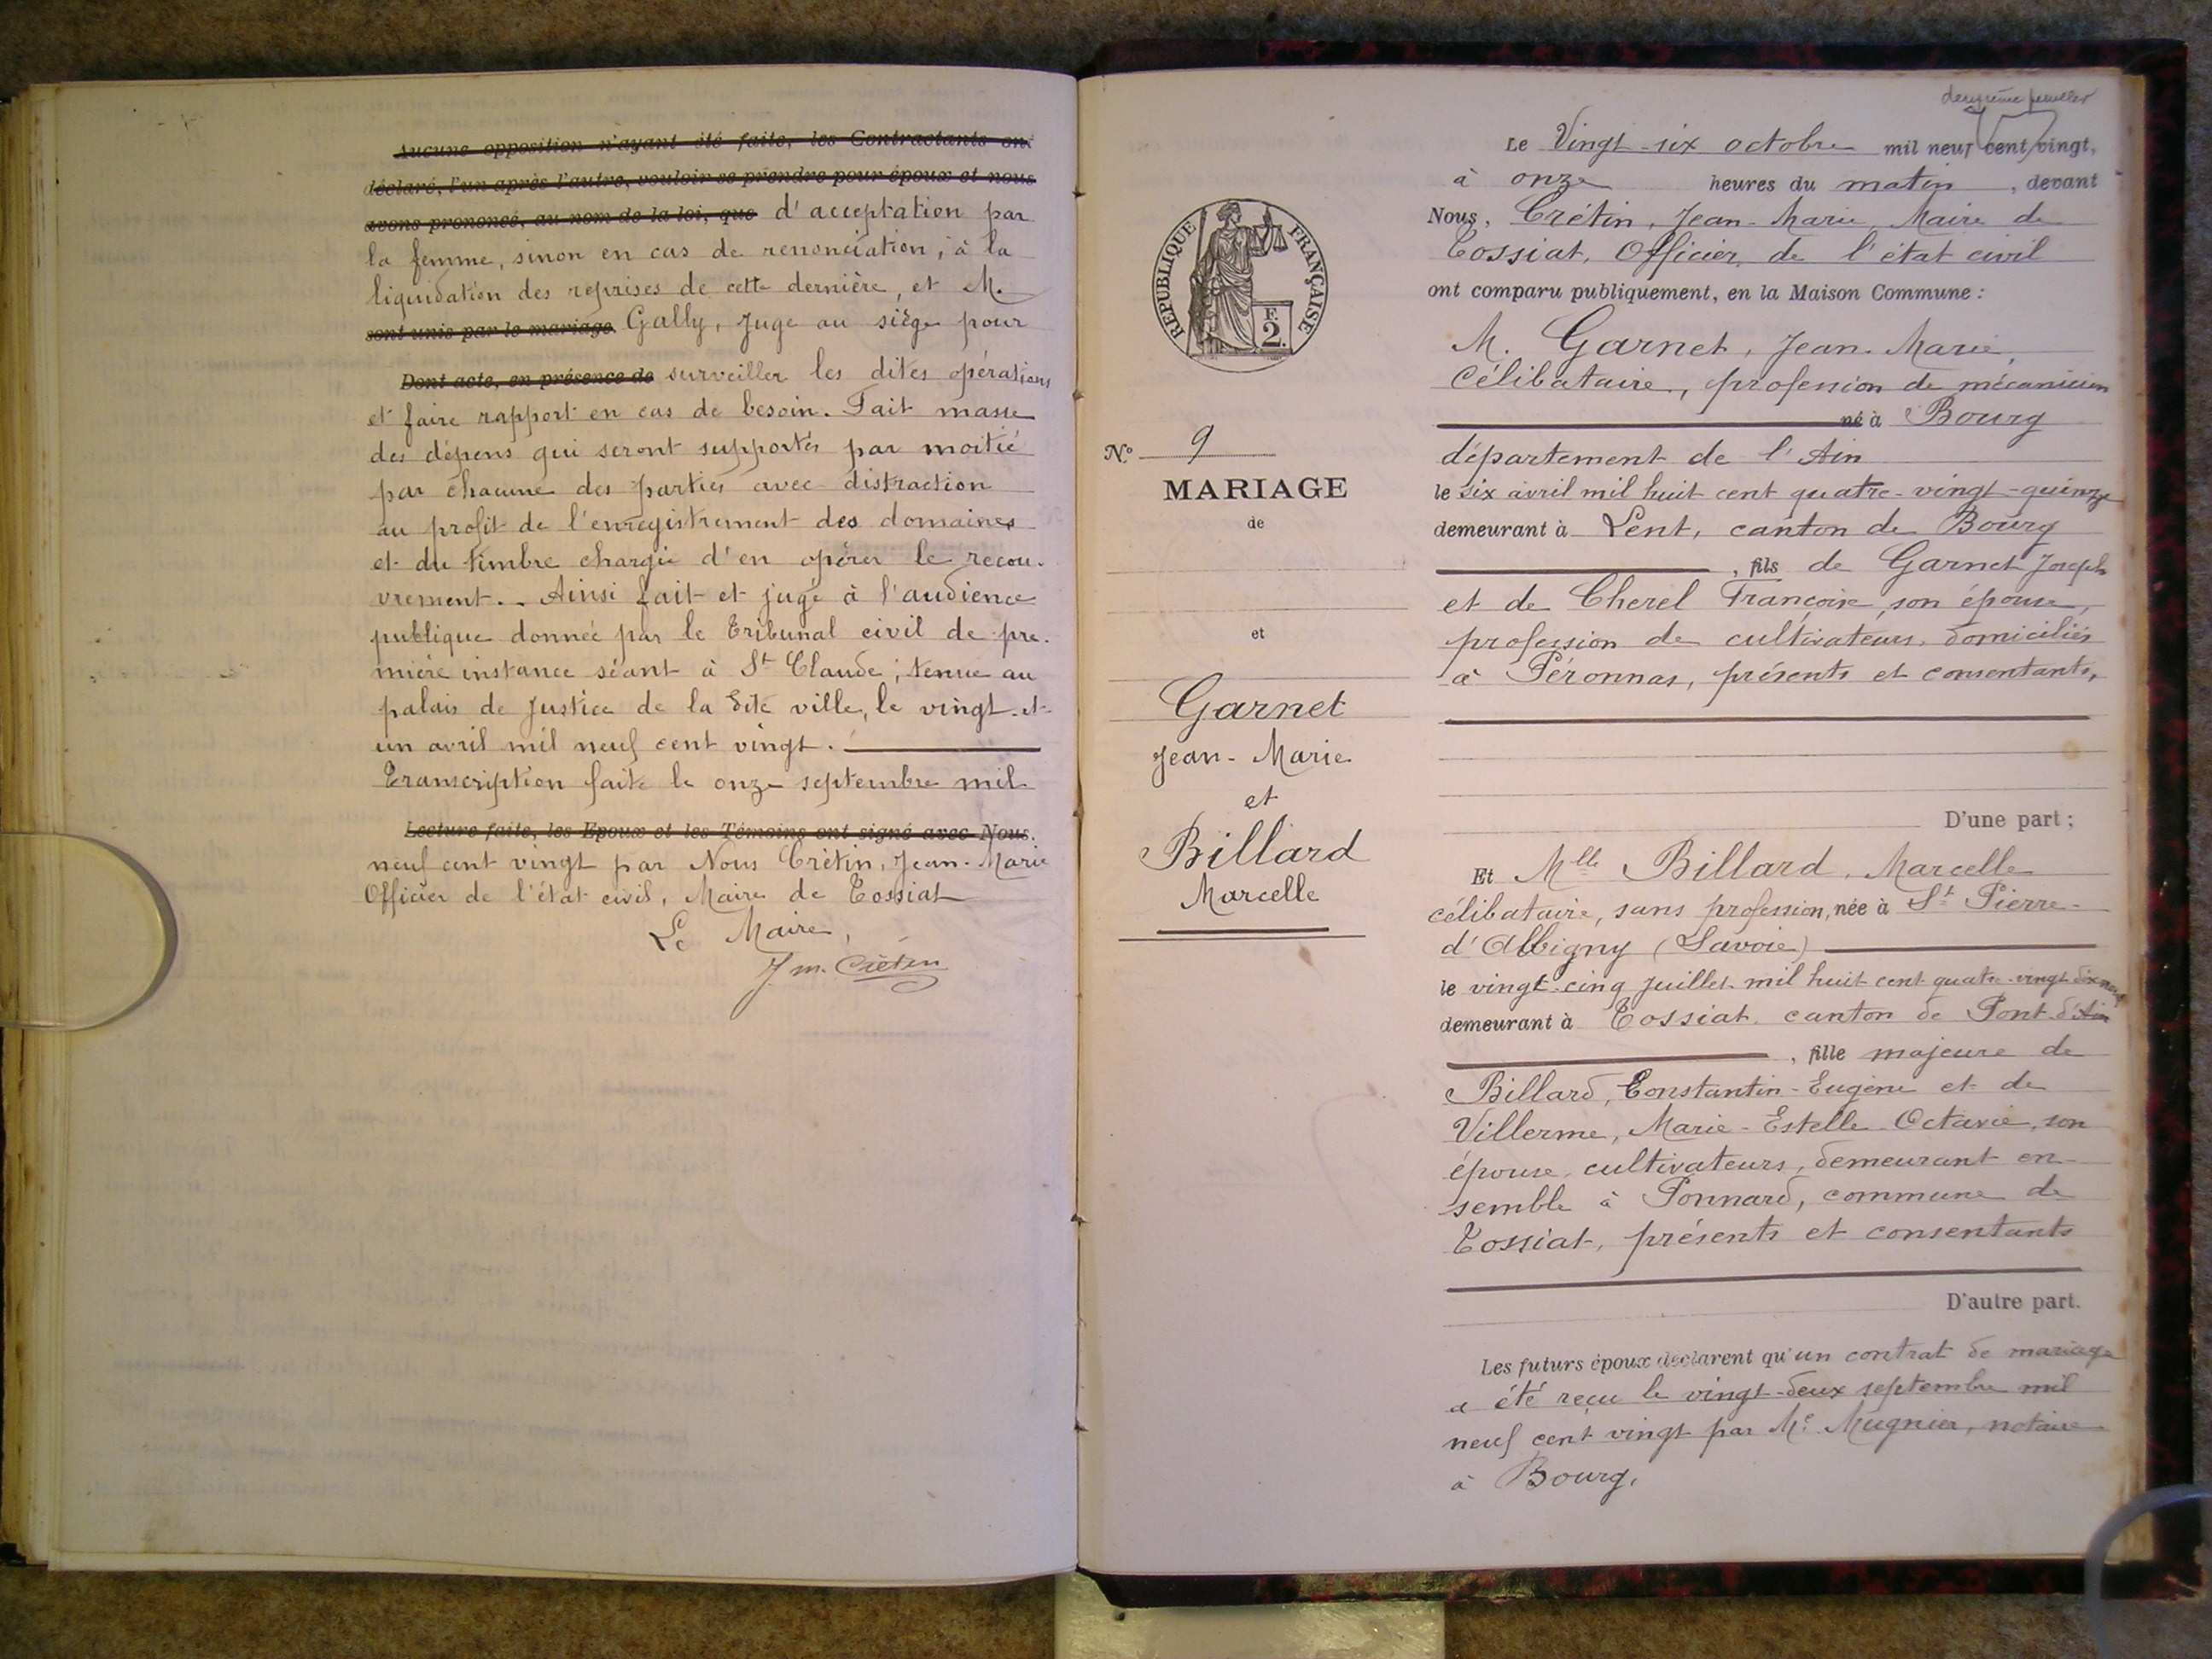 Aucune opposition n'ayant été faite, les Contractants ont
déclaré, l'un après l'autre, vouloir se prendre pour époux et nous
avons prononcé, au nom de la loi, que d'acceptation par
la femme, sinon en cas de renonciation, à la
liquidation des reprises de cette dernière, et M.
sont unis par le mariage. Gally, Juge au siège pour
Dont acte, en présence de surveiller les dites opérations
et faire rapport en cas de besoin. Fait masse
des dépens qui seront supportés par moitié
par chacune des parties avec distraction
au profit de l'enregistrement des domaines
et du timbre chargée d'en opérer le recou-
vrement. - Ainsi fait et jugé à l'audience
publique donnée par le Tribunal civil de pre-
mière instance séant à St Claude ; tenue au
palais de Justice de la dite ville, le vingt-et-
un avril mil neuf cent vingt.
Transcription faite le onze septembre mil
Lecture faite, les Epoux et les Témoins ont signé avec Nous.
neuf cent vingt par Nous Crétin, Jean-Marie
Officier de l'état civil, Maire de Tossiat
Le Maire,
J m. Crétin
REPUBLIQUE FRANÇAISE
F.
2.
N.° 9
MARIAGE
de
et
Garnet
Jean-Marie
et
Billard
Marcelle
deuxième feuillet
Le Vingt-six octobre mil neuf cent vingt,
à onze heures du matin, devant
Nous, Crétin, Jean-Marie Maire de
Tossiat, Officier de l'état civil
ont comparu publiquement, en la Maison Commune :
M. Garnet, Jean-Marie,
Célibataire, profession de mécanicien
né à Bourg
département de l'Ain
le six avril mil huit cent quatre-vingt-quinze
demeurant à Lent, canton de Bourg
, fils de Garnet Joseph
et de Cherel Françoise, son épouse,
profession de cultivateurs, domiciliés
à Péronnas, présents et consentants,
D'une part ;
Et Mlle Billard, Marcelle
célibataire, sans profession, née à St Pierre-
d'Albigny (Savoie)
le vingt-cinq juillet mil huit cent quatre-vingt-dix-neuf
demeurant à Tossiat, canton de Pont-d'Ain
, fille majeure de
Billard, Constantin-Eugène et de
Villerme, Marie-Estelle Octavie, son
épouse, cultivateurs, demeurant en-
semble à Ponnard, commune de
Tossiat, présents et consentants
D'autre part.
Les futurs époux déclarent qu'un contrat de mariage
a été reçu le vingt-deux septembre mil
neuf cent vingt par Me Mugnier, notaire
à Bourg.